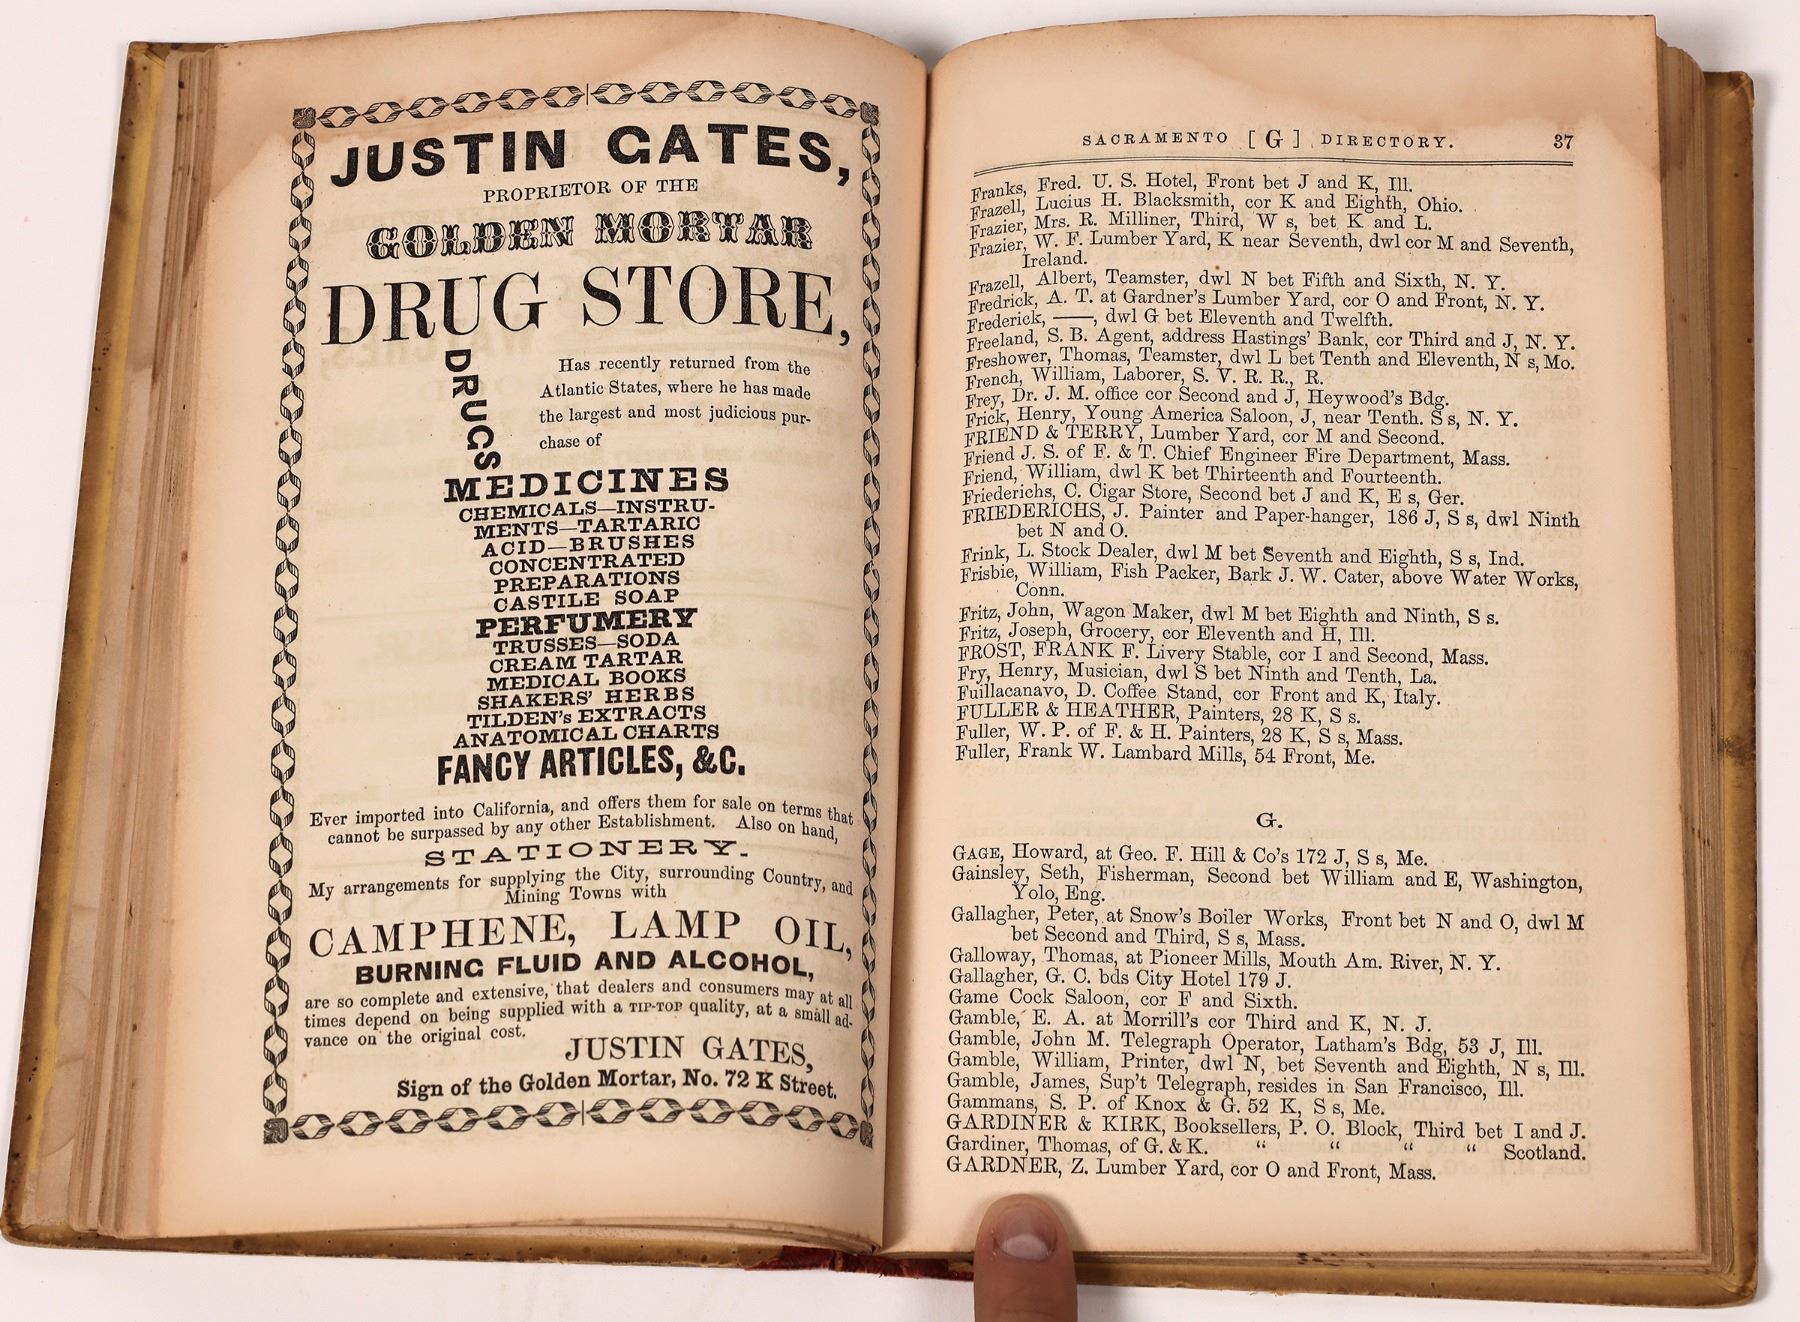 JUSTIN GATES,
PROPRIETOR OF THE
GOLDEN MORTAR
DRUG STORE,
DRUGS
Has recently returned from the
Atlantic States, where he has made
the largest and most judicious pur-
chase of
MEDICINES
CHEMICALS—INSTRU-
MENTS—TARTARIC
ACID—BRUSHES
CONCENTRATED
PREPARATIONS
CASTILE SOAP
PERFUMERY
TRUSSES—SODA
CREAM TARTAR
MEDICAL BOOKS
SHAKERS' HERBS
TILDEN's EXTRACTS
ANATOMICAL CHARTS
FANCY ARTICLES, &C.
Ever imported into California, and offers them for sale on terms that
cannot be surpassed by any other Establishment. Also on hand,
STATIONERY.
My arrangements for supplying the City, surrounding Country, and
Mining Towns with
CAMPHENE, LAMP OIL,
BURNING FLUID AND ALCOHOL,
are so complete and extensive, that dealers and consumers may at all
times depend on being supplied with a TIP-TOP quality, at a small ad-
vance on the original cost.
JUSTIN GATES,
Sign of the Golden Mortar, No. 72 K Street.
SACRAMENTO [G] DIRECTORY. 37
Franks, Fred. U. S. Hotel, Front bet J and K, Ill.
Frazell, Lucius H. Blacksmith, cor K and Eighth, Ohio.
Frazier, Mrs. R. Milliner, Third, W s, bet K and L.
Frazier, W. F. Lumber Yard, K near Seventh, dwl cor M and Seventh,
Ireland.
Frazell, Albert, Teamster, dwl N bet Fifth and Sixth, N. Y.
Fredrick, A. T. at Gardner's Lumber Yard, cor O and Front, N. Y.
Frederick, ——, dwl G bet Eleventh and Twelfth.
Freeland, S. B. Agent, address Hastings' Bank, cor Third and J, N. Y.
Freshower, Thomas, Teamster, dwl L bet Tenth and Eleventh, N s, Mo.
French, William, Laborer, S. V. R. R., R.
Frey, Dr. J. M. office cor Second and J, Heywood's Bdg.
Frick, Henry, Young America Saloon, J, near Tenth. S s, N. Y.
FRIEND & TERRY, Lumber Yard, cor M and Second.
Friend J. S. of F. & T. Chief Engineer Fire Department, Mass.
Friend, William, dwl K bet Thirteenth and Fourteenth.
Friederichs, C. Cigar Store, Second bet J and K, E s, Ger.
FRIEDERICHS, J. Painter and Paper-hanger, 186 J, S s, dwl Ninth
bet N and O.
Frink, L. Stock Dealer, dwl M bet Seventh and Eighth, S s, Ind.
Frisbie, William, Fish Packer, Bark J. W. Cater, above Water Works,
Conn.
Fritz, John, Wagon Maker, dwl M bet Eighth and Ninth, S s.
Fritz, Joseph, Grocery, cor Eleventh and H, Ill.
FROST, FRANK F. Livery Stable, cor I and Second, Mass.
Fry, Henry, Musician, dwl S bet Ninth and Tenth, La.
Fuillacanavo, D. Coffee Stand, cor Front and K, Italy.
FULLER & HEATHER, Painters, 28 K, S s.
Fuller, W. P. of F. & H. Painters, 28 K, S s, Mass.
Fuller, Frank W. Lambard Mills, 54 Front, Me.
G.
GAGE, Howard, at Geo. F. Hill & Co's 172 J, S s, Me.
Gainsley, Seth, Fisherman, Second bet William and E, Washington,
Yolo, Eng.
Gallagher, Peter, at Snow's Boiler Works, Front bet N and O, dwl M
bet Second and Third, S s, Mass.
Galloway, Thomas, at Pioneer Mills, Mouth Am. River, N. Y.
Gallagher, G. C. bds City Hotel 179 J.
Game Cock Saloon, cor F and Sixth.
Gamble, E. A. at Morrill's cor Third and K, N. J.
Gamble, John M. Telegraph Operator, Latham's Bdg, 53 J, Ill.
Gamble, William, Printer, dwl N, bet Seventh and Eighth, N s, Ill.
Gamble, James, Sup't Telegraph, resides in San Francisco, Ill.
Gammans, S. P. of Knox & G. 52 K, S s, Me.
GARDINER & KIRK, Booksellers, P. O. Block, Third bet I and J.
Gardiner, Thomas, of G. & K. “ “ “ “ Scotland.
GARDNER, Z. Lumber Yard, cor O and Front, Mass.